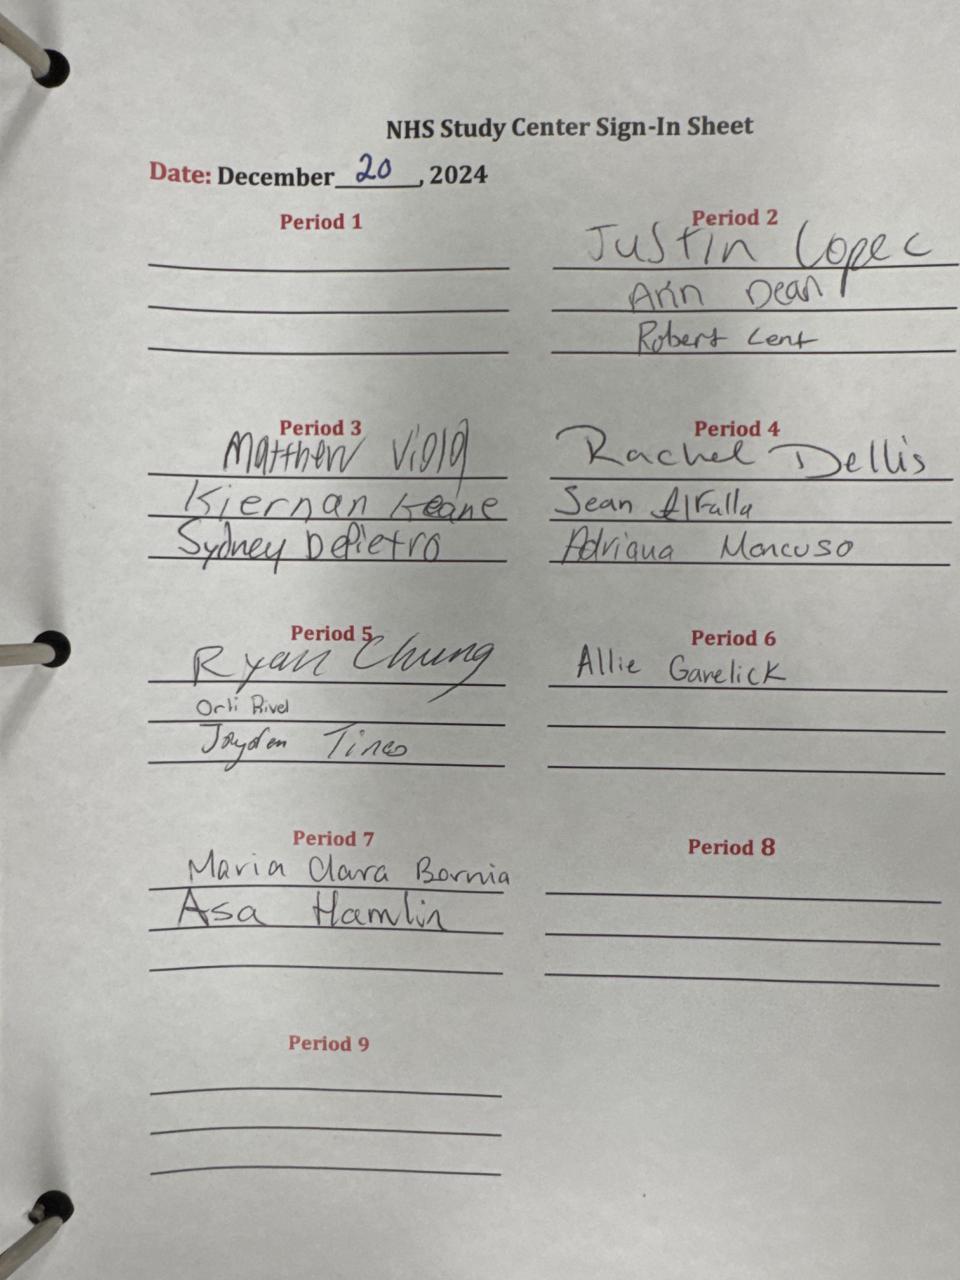 NHS Study Center Sign-In Sheet
Date: December 20, 2024
Period 1
Period 2
Justin Lopec
Arin Dean
Robert Lent
Period 3
Matthew Viola
Kiernan Keane
Sydney DePietro
Period 4
Rachel Dellis
Sean AlFalla
Adriana Mancuso
Period 5
Ryan Chung
Orli Rivel
Jayden Tineo
Period 6
Allie Garelick
Period 7
Maria Clara Bornia
Asa Hamlin
Period 8
Period 9